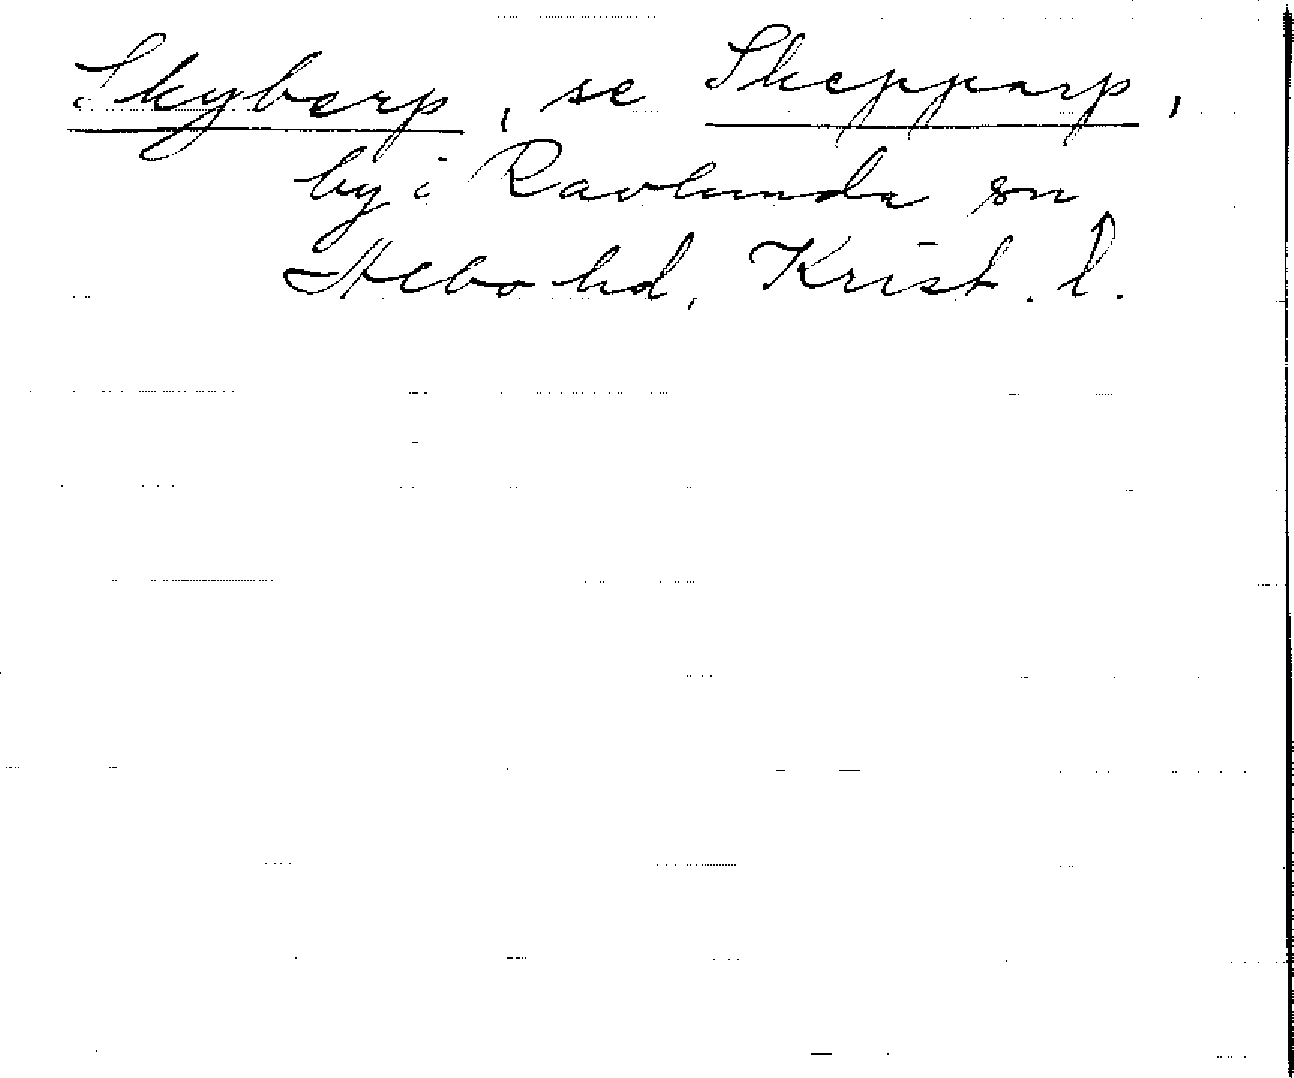 Skyberp, se Skepparp,
by i Ravlunda sn
Albo hd, Krist. l.